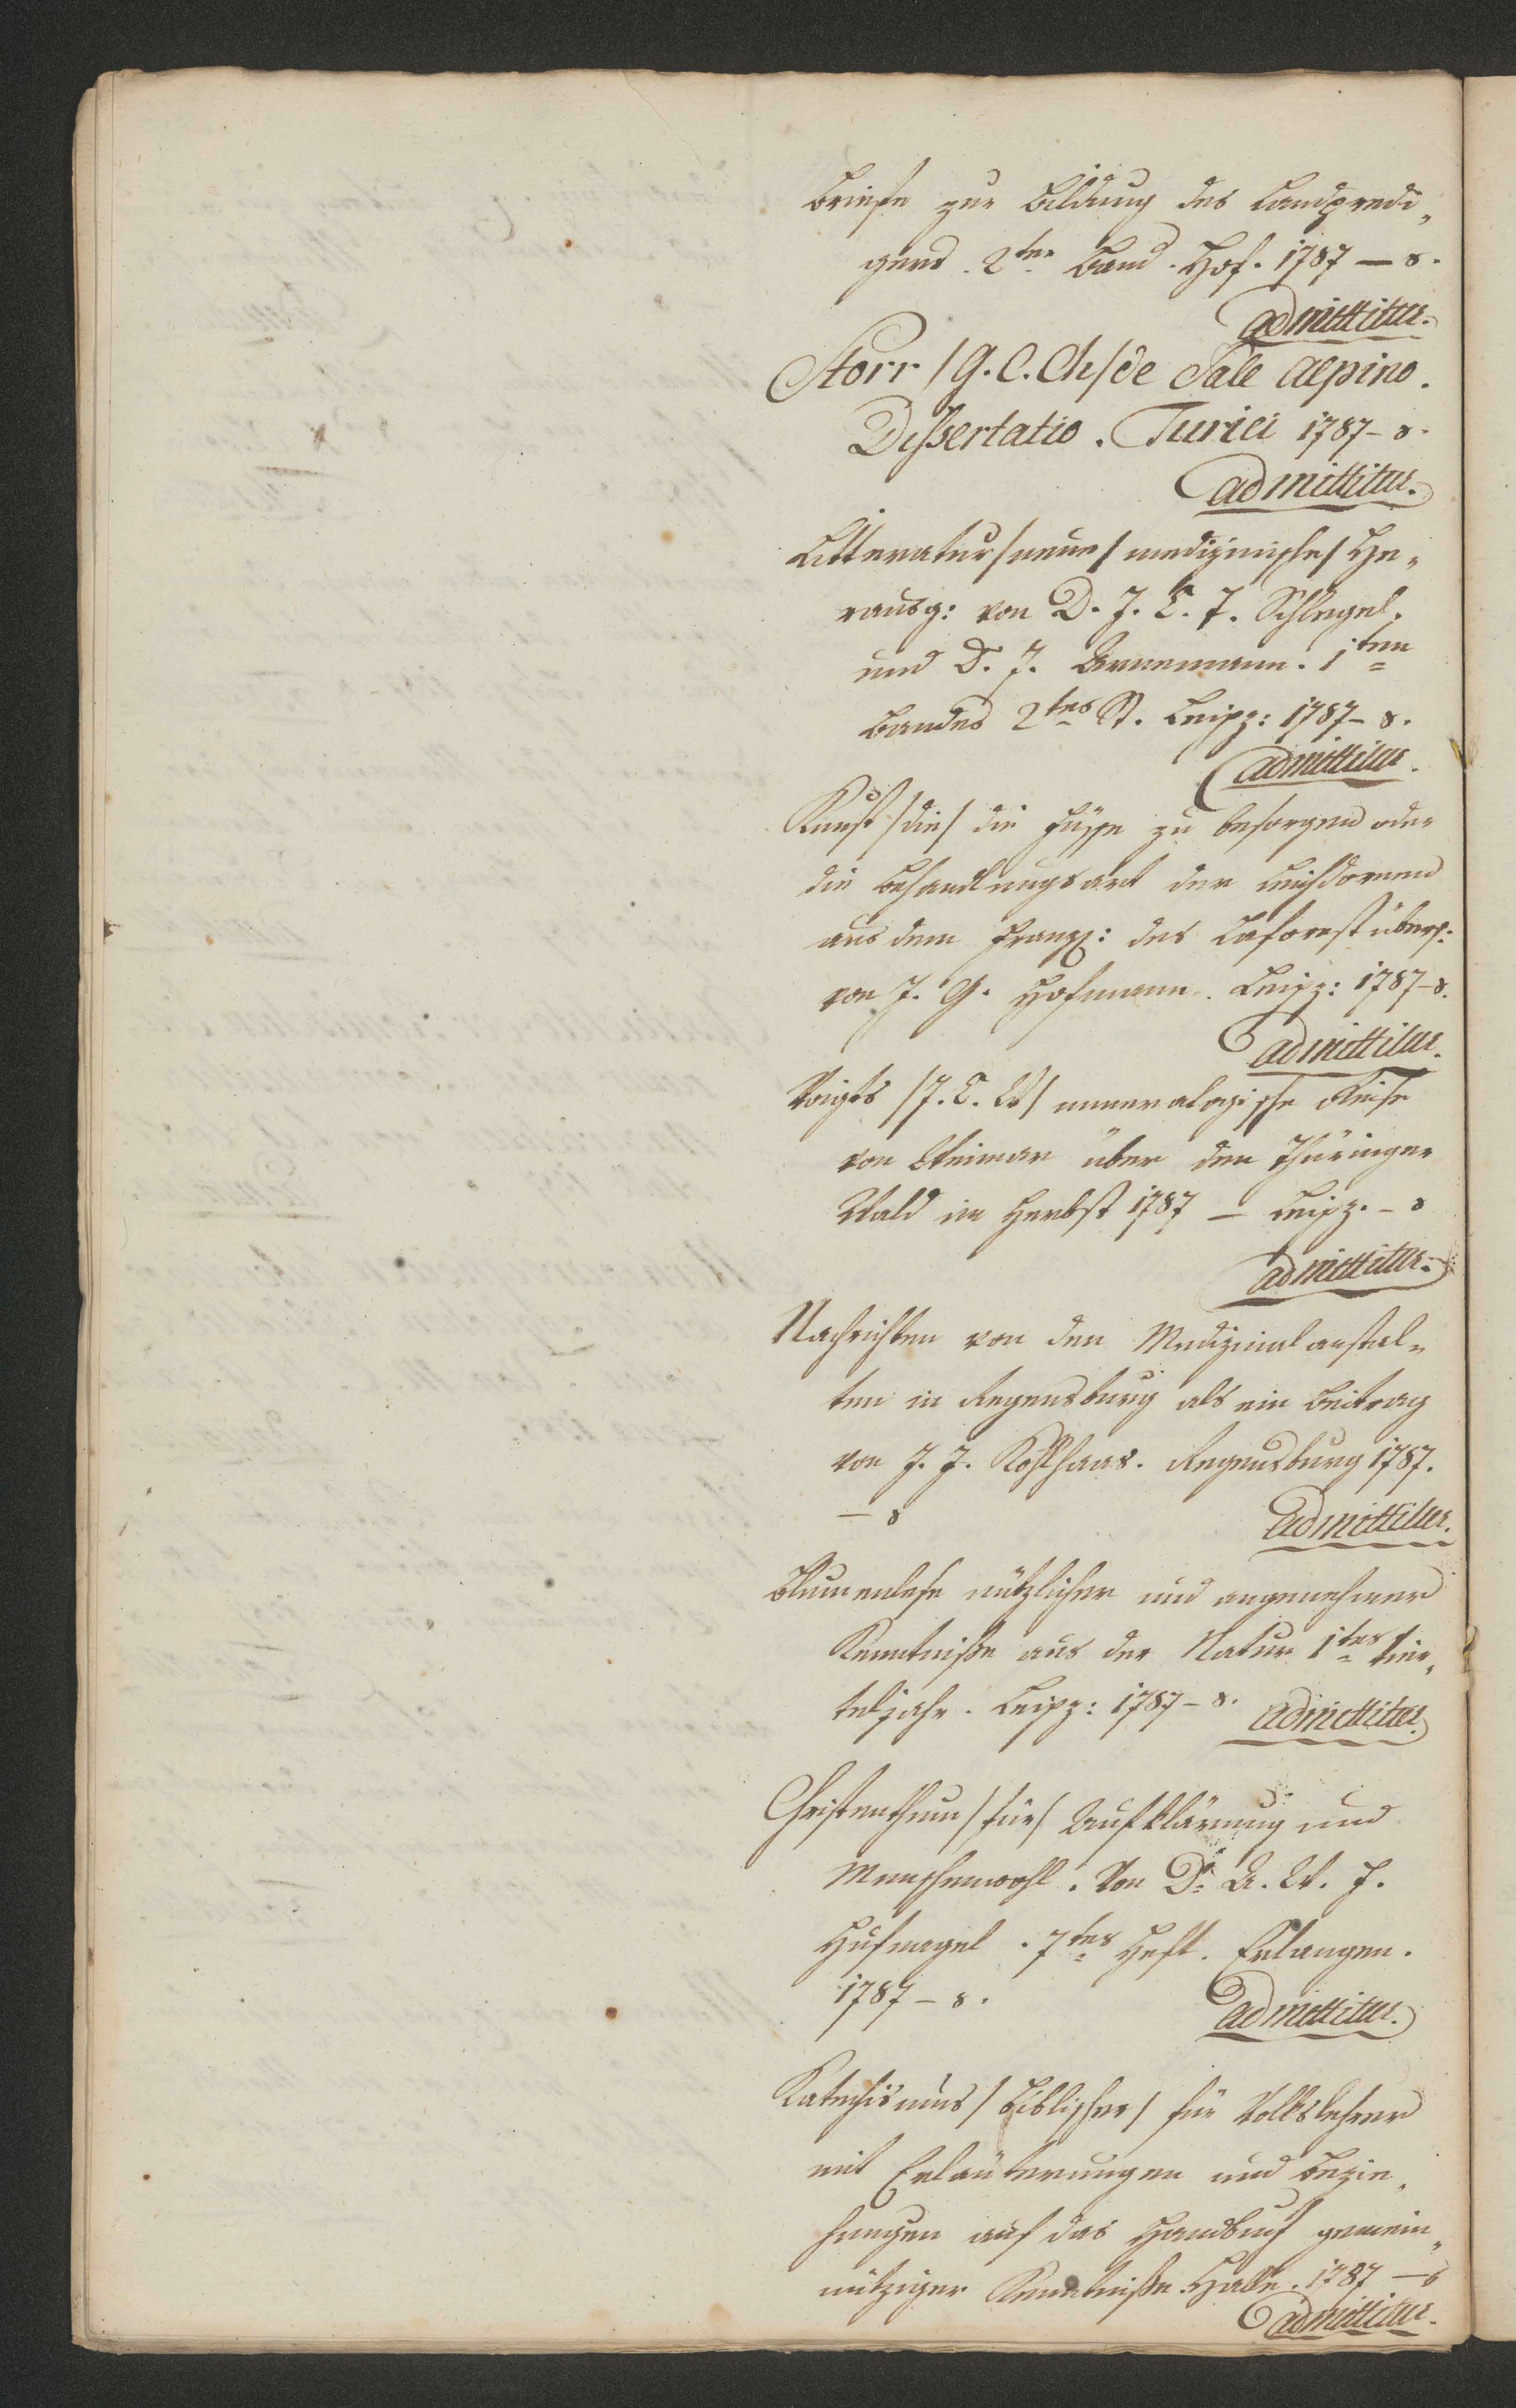 Briefe zur Bildung des Landpredi„
gers. 2ter Band. Hof. 1787 – 8.
admittitur.
Storr /G. C. Ch/ de Sale Alpino.
Dissertatio. Turici 1787 – 8.
admittitur.
Litteratur /neue/ medizinische/ He„
rausg: von D. J. C. T. Schlegel.
und D. J. Arnemann. 1ten
Bandes 2tes St. Leipz: 1787 – 8.
admittitur.
Kunst /die/ die Füsse zu besorgen oder
die Behandlungsart der Leichdornen
aus dem Franz: des Laforest übers:
von J. G. Hofmann. Leipz: 1787 – 8.
admittitur.
Voigts /J. C. W/ mineralogische Reise
von Weimar über den Thüringer
Wald im Herbst 1787 – Leipz. – 8
admittitur.
Nachrichten von den Medizinalanstal„
ten in Regensburg als ein Beitrag
von J. J. Kohlhaas. Regensburg 1787.
– 8 admittitur.
Blumenlese nützlicher und angenehmer
Kenntniße aus der Natur 1tes Vier„
teljahr. Leipz: 1787 – 8. admittitur.
Christenthum /für/ Aufklärung und
Menschenwohl. Von Dr W. F.
Hufnagel. 7tes Heft. Erlangen.
1787 – 8. admittitur.
Katechismus /biblischer/ für Volkslehrer
mit Erläuterungen und Bezie„
hungen auf das Handbuch gemein„
nütziger Kenntniße. Halle. 1787 – 8
admittitur.